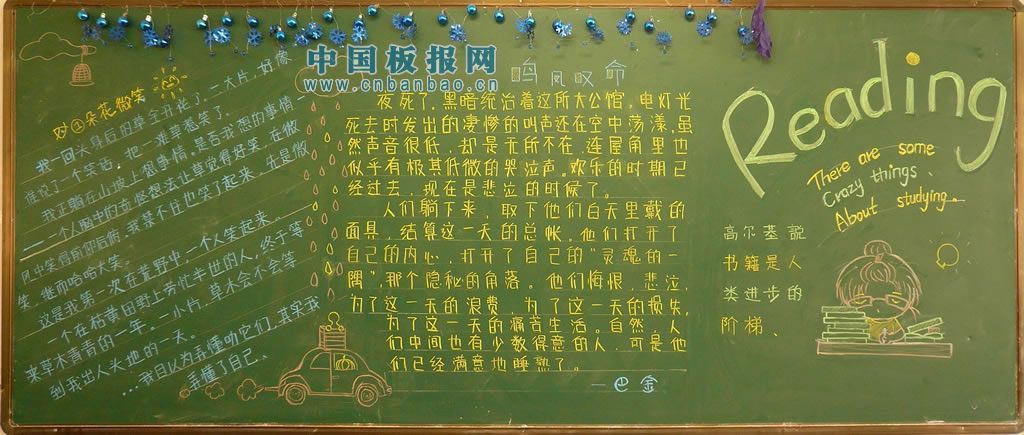 中国板报网
www.cnbanbao.cn
妙①朵花微笑
我一回头身后的草全开花了，一大片，好像
谁说了一个笑话，把一滩草惹笑了。
我正躺在山坡上想事情。是否我想的事情－
——一个人脑中的奇怪想法让草觉得好笑，在微
风中笑得前仰后俯。我禁不住也笑了起来，先是微
笑，继而哈哈大笑。
这是我第一次在荒野中，一个人笑起来。
一个在枯黄田野上劳忙半世的人，终于等
来草木青青的一年。一小片，草木会不会等
到我出人头地的一天。
…我自以为弄懂了它们，其实我
弄懂了自己、
鸣凤叹命
夜死了，黑暗统治着这所大公馆，电灯光
死去时发出的凄惨的叫声还在空中荡漾，虽
然声音很低，却是无所不在，连屋角里也
似乎有极其低微的哭泣声。欢乐的时期已
经过去，现在是悲泣的时候了。
人们躺下来，取下他们白天里戴的
面具，结算这一天的总帐。他们打开了
自己的内心，打开了自己的“灵魂的一
隅”，那个隐秘的角落。他们悔恨，悲泣，
为了这一天的浪费，为了这一天的损失，
为了这一天的痛苦生活。自然，人
们中间也有少数得意的人，可是他
们已经满意地睡熟了。
—巴金
Reading
There are some
Crazy things、
About studying。
高尔基说
书籍是人
类进步的
阶梯、